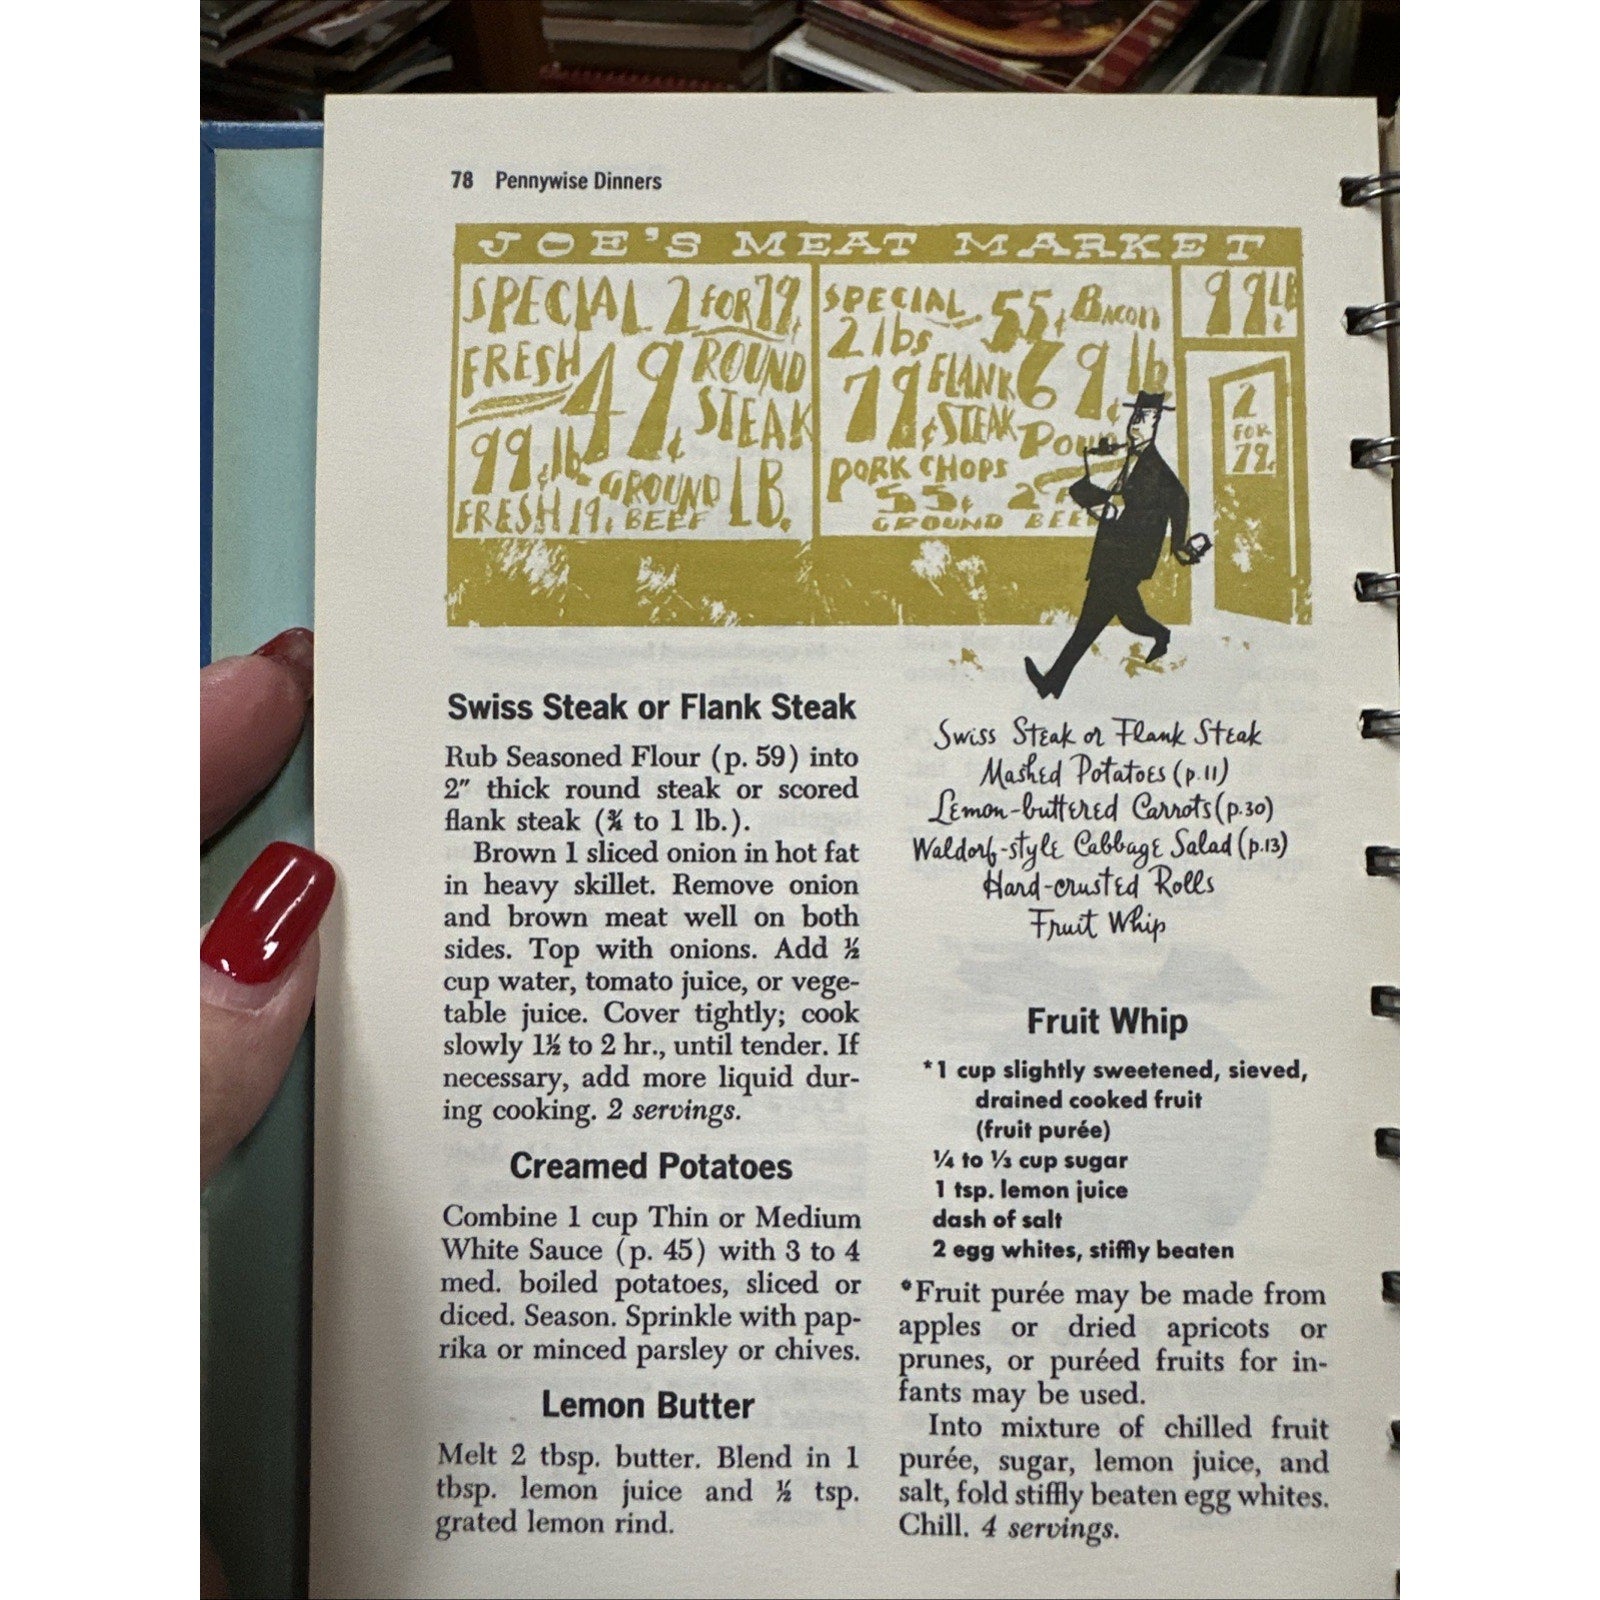 78 Pennywise Dinners
JOE'S MEAT MARKET
SPECIAL 2 FOR 79¢
FRESH 49¢ ROUND
STEAK
99¢ lb. GROUND LB.
FRESH 19¢ BEEF
SPECIAL 55¢ BACON
2 lbs 69¢ lb
79¢ FLANK
STEAK
PORK CHOPS
55¢
GROUND BEEF
99¢ LB
2
FOR
79¢
Swiss Steak or Flank Steak
Rub Seasoned Flour (p. 59) into
2" thick round steak or scored
flank steak (¾ to 1 lb.).
Brown 1 sliced onion in hot fat
in heavy skillet. Remove onion
and brown meat well on both
sides. Top with onions. Add ½
cup water, tomato juice, or vege-
table juice. Cover tightly; cook
slowly 1½ to 2 hr., until tender. If
necessary, add more liquid dur-
ing cooking. 2 servings.
Creamed Potatoes
Combine 1 cup Thin or Medium
White Sauce (p. 45) with 3 to 4
med. boiled potatoes, sliced or
diced. Season. Sprinkle with pap-
rika or minced parsley or chives.
Lemon Butter
Melt 2 tbsp. butter. Blend in 1
tbsp. lemon juice and ½ tsp.
grated lemon rind.
Swiss Steak or Flank Steak
Mashed Potatoes (p. 11)
Lemon-buttered Carrots (p. 30)
Waldorf-style Cabbage Salad (p. 13)
Hard-crusted Rolls
Fruit Whip
Fruit Whip
*1 cup slightly sweetened, sieved,
drained cooked fruit
(fruit purée)
¼ to ⅓ cup sugar
1 tsp. lemon juice
dash of salt
2 egg whites, stiffly beaten
*Fruit purée may be made from
apples or dried apricots or
prunes, or puréed fruits for in-
fants may be used.
Into mixture of chilled fruit
purée, sugar, lemon juice, and
salt, fold stiffly beaten egg whites.
Chill. 4 servings.